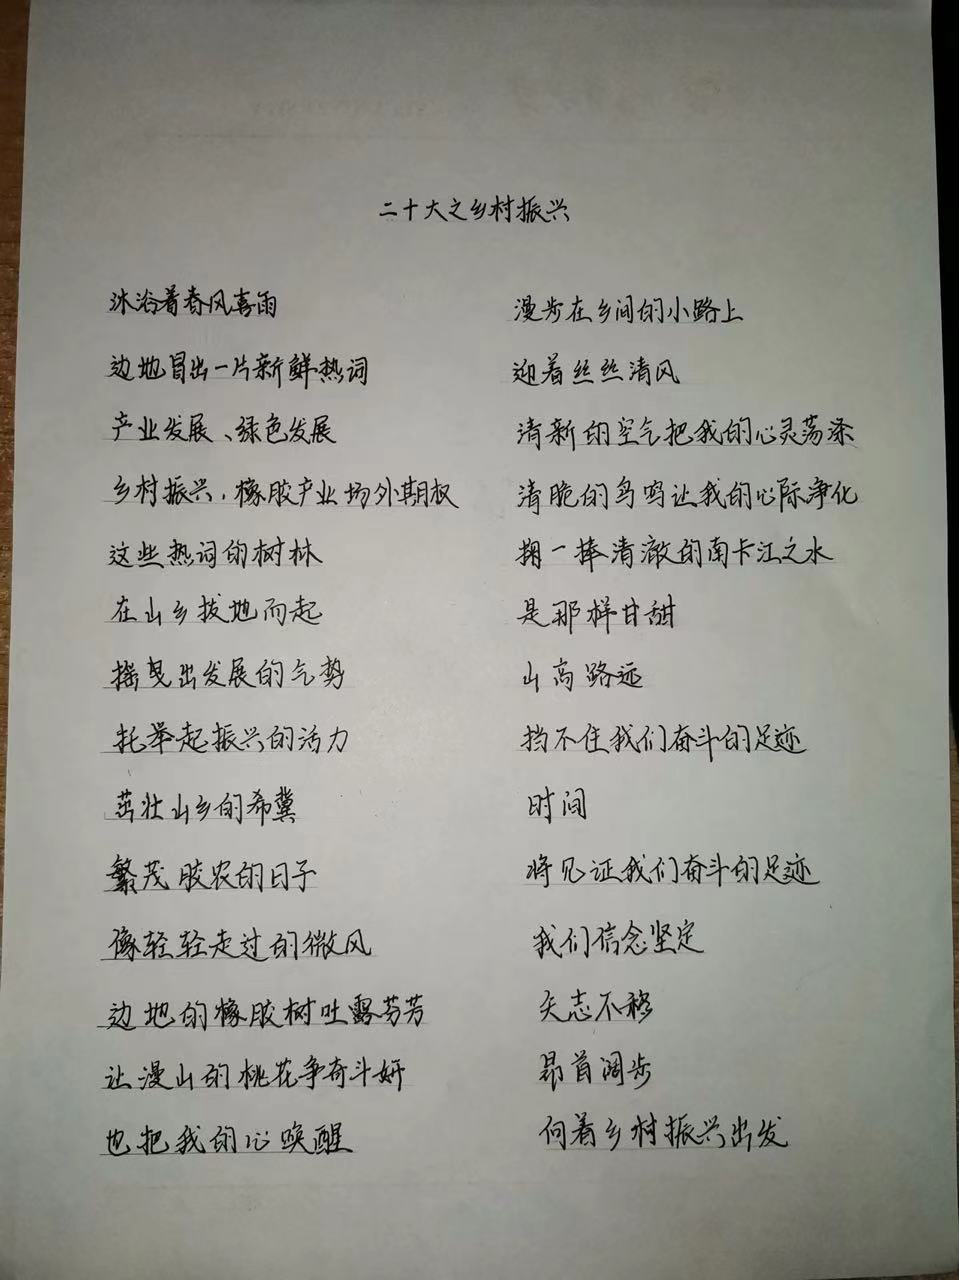 二十大之乡村振兴
沐浴着春风喜雨
边地冒出一片新鲜热词
产业发展、绿色发展
乡村振兴，橡胶产业场外期权
这些热词的树林
在山乡拔地而起
摇曳出发展的气势
托举起振兴的活力
茁壮山乡的希冀
繁茂胶农的日子
像轻轻走过的微风
边地的橡胶树吐露芬芳
让漫山的桃花争奇斗妍
也把我的心唤醒
漫步在乡间的小路上
迎着丝丝清风
清新的空气把我的心灵荡涤
清脆的鸟鸣让我的心际净化
掬一捧清澈的南卡江之水
是那样甘甜
山高路远
挡不住我们奋斗的足迹
时间
将见证我们奋斗的足迹
我们信念坚定
矢志不移
昂首阔步
向着乡村振兴出发